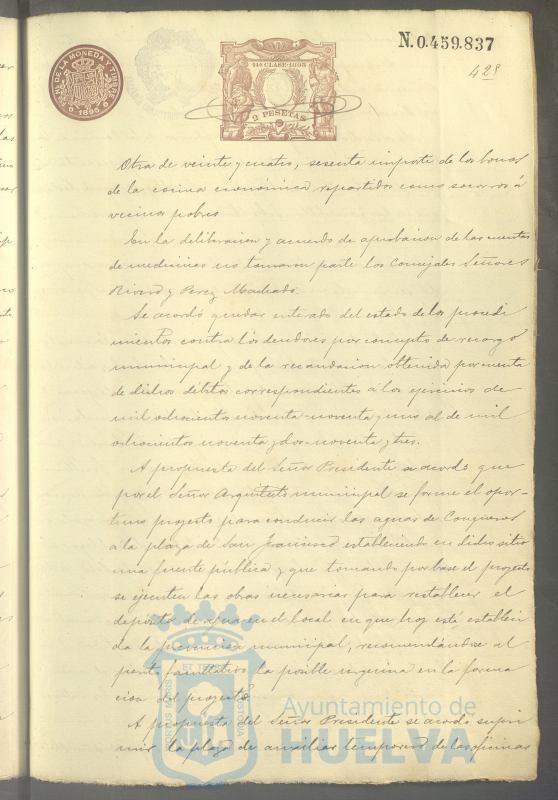 N.0.459.837
428
PAL DE LA MONEDA Y TIMBRE
1895
11ª CLASE-1895
2 PESETAS
Otra de veinte y cuatro, sesenta importe de los bonos
de la cocina económica repartidos como socorros á
vecinos pobres
En la deliberacion y acuerdo de aprobacion de las cuentas
de medicinas no tomaron parte los Concejales Señores
Rivero y Perez Machado.
Se acordó quedar enterado del estado de los procedi
mientos contra los deudores por concepto de recargo
municipal y de la recaudacion obtenida por cuenta
de dichos débitos correspondientes á los ejercicios de
mil ochocientos noventa-noventa y uno al de mil
ochocientos noventa y dos-noventa y tres.
A propuesta del Señor Presidente se acordó que
por el Señor Arquitecto municipal se forme el opor-
tuno proyecto para conducir las aguas de
á la plaza de San Francisco estableciendo en dicho sitio
una fuente pública y que tomando por base el proyecto
se ejecuten las obras necesarias para restablecer el
depósito de agua en el local en que hoy está estableci
da la municipal, recomendándose al
perito facultativo la posible urgencia en la forma
cion del proyecto.
A propuesta del Señor Presidente se acordó supri
mir la plaza de auxiliar temporero de las oficinas
Ayuntamiento de
HUELVA